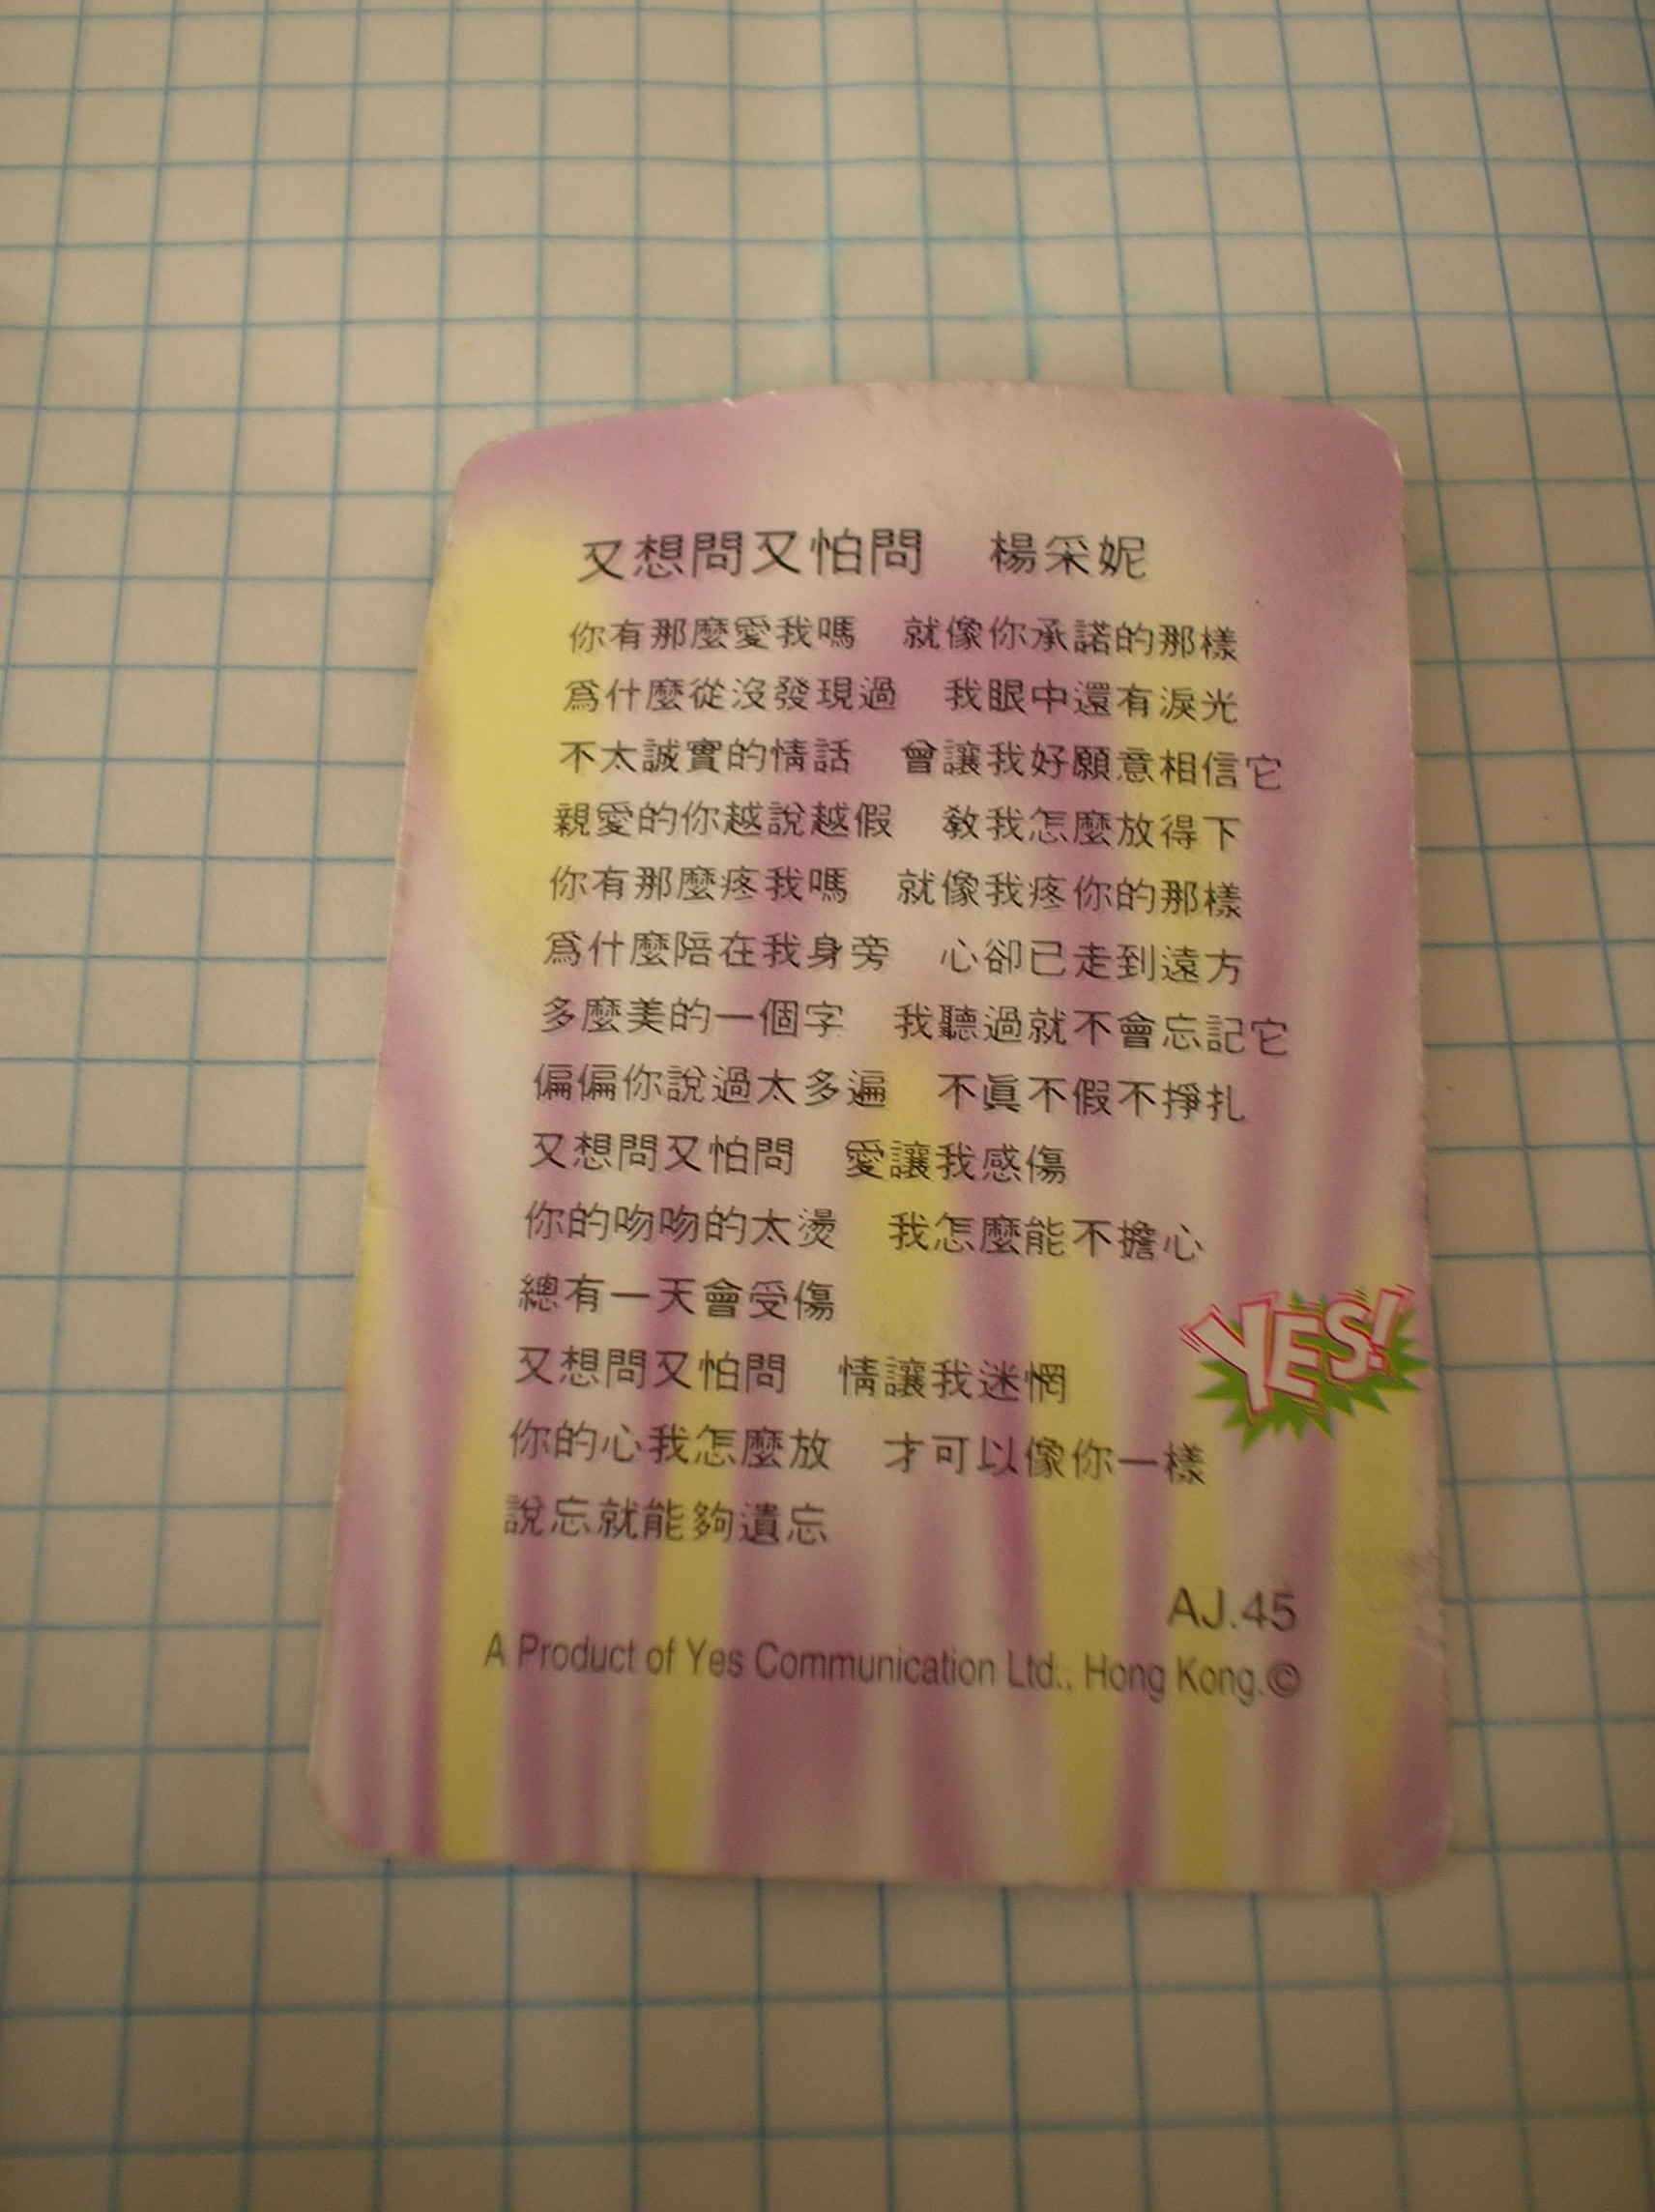 又想問又怕問　楊采妮
你有那麼愛我嗎　就像你承諾的那樣
爲什麼從沒發現過　我眼中還有淚光
不太誠實的情話　曾讓我好願意相信它
親愛的你越說越假　教我怎麼放得下
你有那麼疼我嗎　就像我疼你的那樣
爲什麼陪在我身旁　心卻已走到遠方
多麼美的一個字　我聽過就不會忘記它
偏偏你說過太多遍　不眞不假不掙扎
又想問又怕問　愛讓我感傷
你的吻吻的太燙　我怎麼能不擔心
總有一天會受傷
又想問又怕問　情讓我迷惘
你的心我怎麼放　才可以像你一樣
說忘就能夠遺忘
YES!
AJ.45
A Product of Yes Communication Ltd., Hong Kong.©